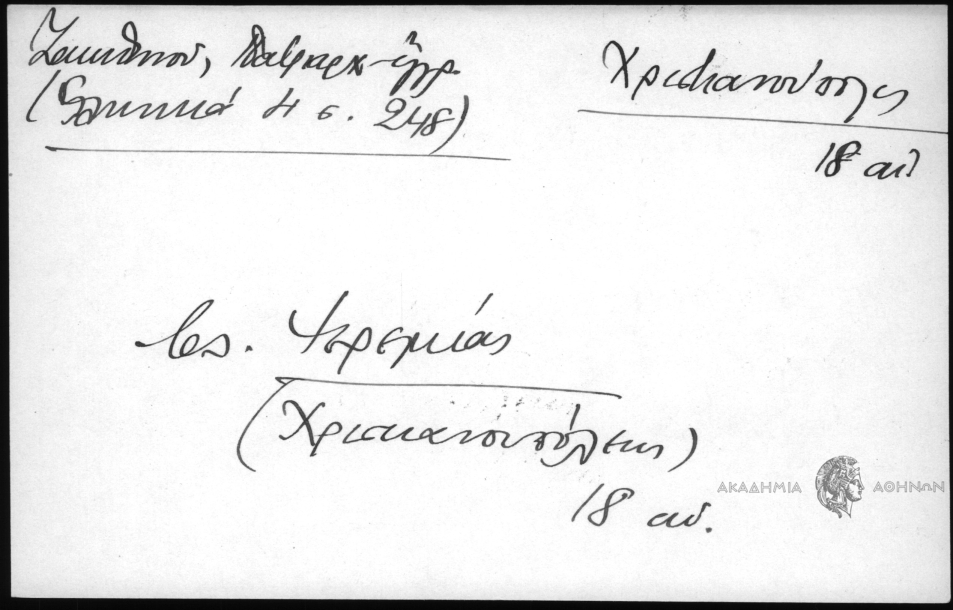 Ζακυθηνού, Πατριαρχ. έγγρ.
(Ελληνικά 4 σ. 248)
Χριστιανούπολις
18 αι
βλ. Ιερεμίας
(Χριστιανουπόλεως)
18 αι.
ΑΚΑΔΗΜΙΑ ΑΘΗΝΩΝ